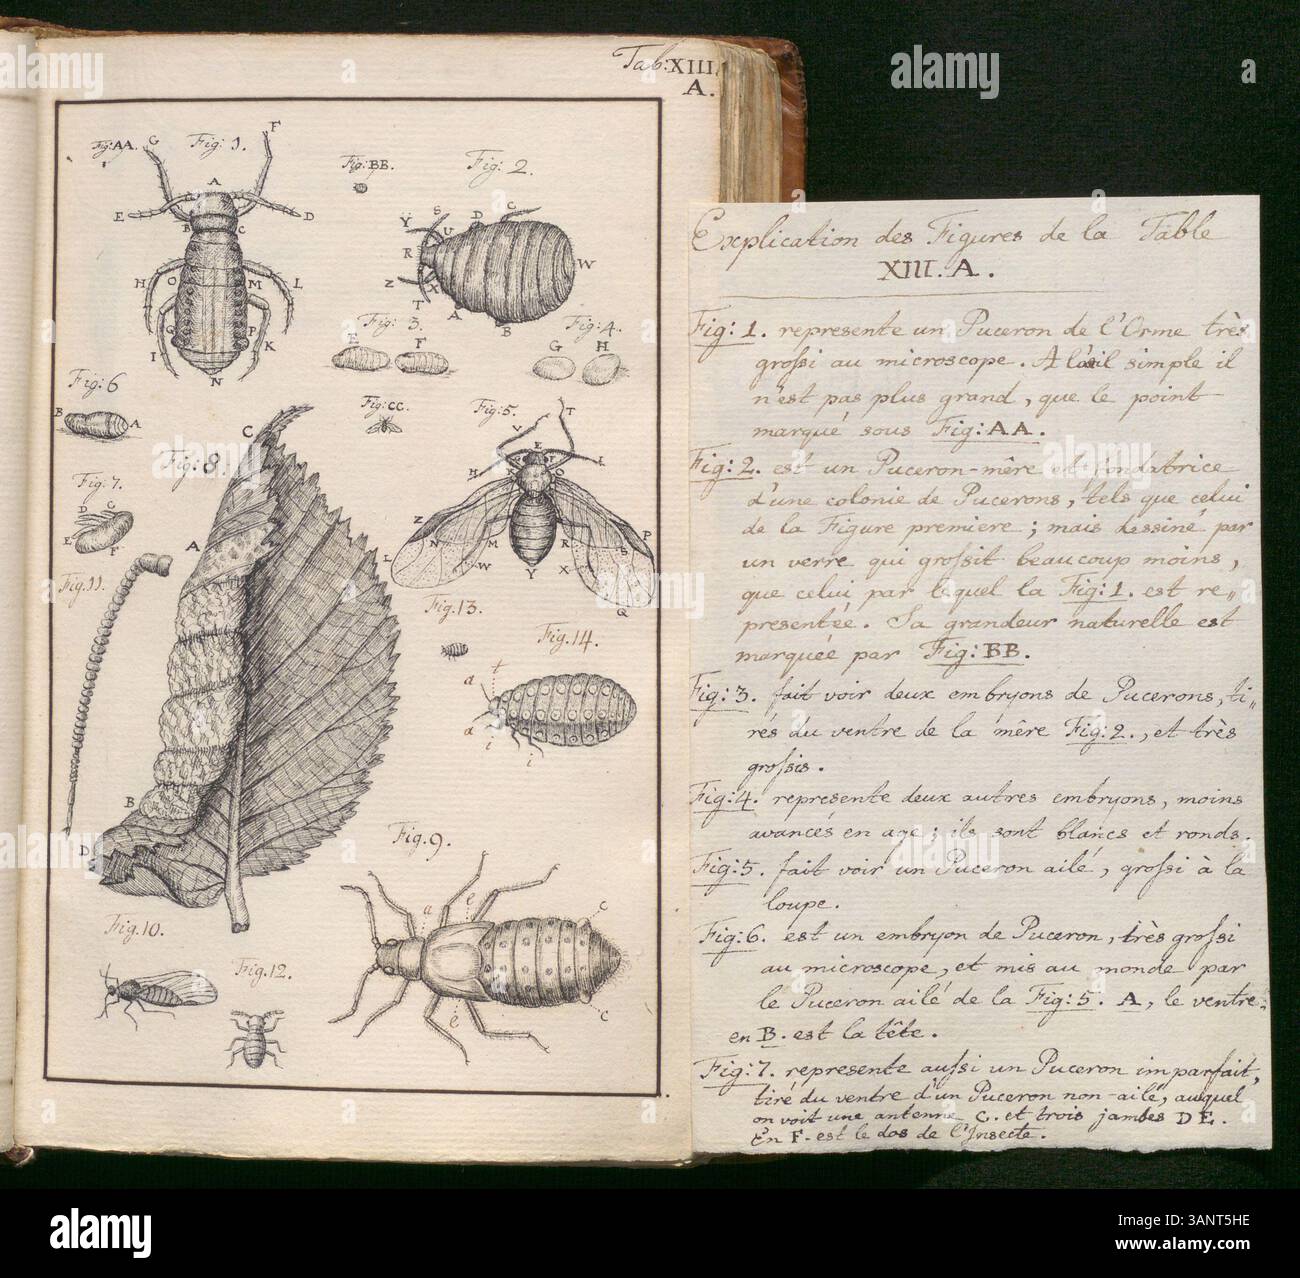 Tab: XIII.
A.
Fig: AA.
G
Fig: 1.
F
A
E
D
B
C
H
O
M
L
Q
P
I
K
N
Fig: BB.
Fig: 2.
Y
S
D
C
R
U
W
Z
X
T
A
B
Fig: 3.
E
F
Fig: 4.
G
H
Fig: 6
B
A
Fig: CC.
Fig: 5.
T
V
E
H
I
Z
P
L
N
M
R
S
W
X
Y
Q
Fig: 7.
D
C
E
F
C
Fig: 8.
A
B
D
Fig. 11.
Fig. 13.
Fig. 14.
t
a
a
i
i
Fig. 9.
a
e
c
e
c
Fig. 10.
Fig. 12.
Explication des Figures de la Table
XIII. A.
Fig: 1. represente un Puceron de l'Orme très
grossi au microscope. A l'œil simple il
n'est pas plus grand, que le point
marqué sous Fig: AA.
Fig: 2. est un Puceron-mère et fondatrice
d'une colonie de Pucerons, tels que celui
de la Figure premiere; mais dessiné par
un verre qui grossit beaucoup moins,
que celui par lequel la Fig: 1. est re„
presentée. Sa grandeur naturelle est
marqueé par Fig: BB.
Fig: 3. fait voir deux embryons de Pucerons, ti„
rés du ventre de la mêre Fig: 2., et très
grossis.
Fig: 4. represente deux autres embryons, moins
avancés en age; ils sont blancs et ronds.
Fig: 5. fait voir un Puceron ailé, grossi à la
loupe.
Fig: 6. est un embryon de Puceron, très grossi
au microscope, et mis au monde par
le Puceron ailé de la Fig: 5. A, le ventre.
en B. est la tête.
Fig: 7. represente aussi un Puceron imparfait,
tiré du ventre d'un Puceron non-ailé, auquel
on voit une antenne C. et trois jambes D E.
En F. est le dos de l'Insecte.
alamy
Image ID: 3ANT5HE
www.alamy.com